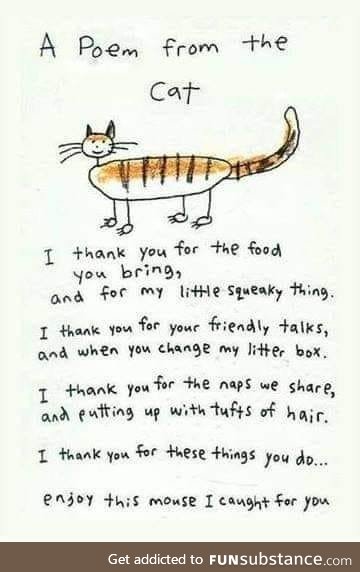 A Poem from the
Cat
I thank you for the food
you bring,
and for my little squeaky thing.
I thank you for your friendly talks,
and when you change my litter box.
I thank you for the naps we share,
and putting up with tufts of hair.
I thank you for these things you do...
enjoy this mouse I caught for you
Get addicted to FUNsubstance.com